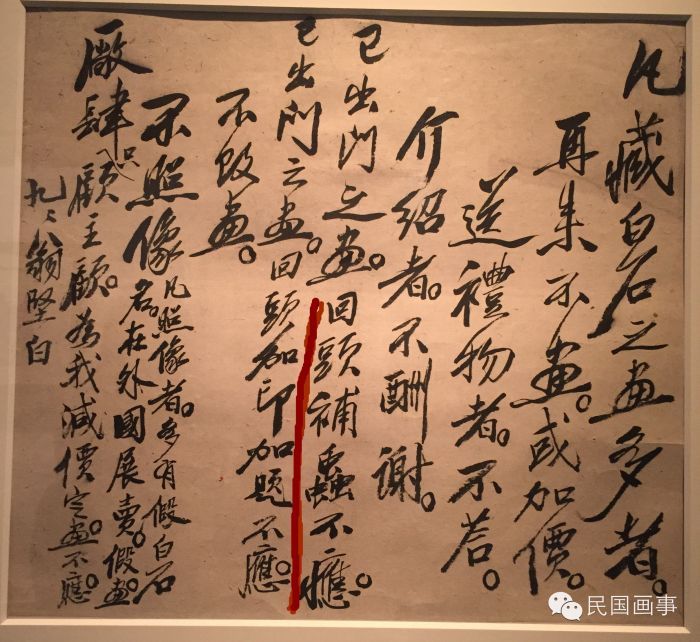 凡藏白石之畫多者。
再來不畫。或加價。
送禮物者。不荅。
介紹者。不酬謝。
已出門之畫。回頭補蟲不應。
已出門之畫。回頭加印加題不應。
不跋畫。
不照像。凡照像者。多有假白石
名。在外國展賣。假畫。
厰肆只顧主顧。為我減價定畫。不應。
九〻八翁堅白
民国画事